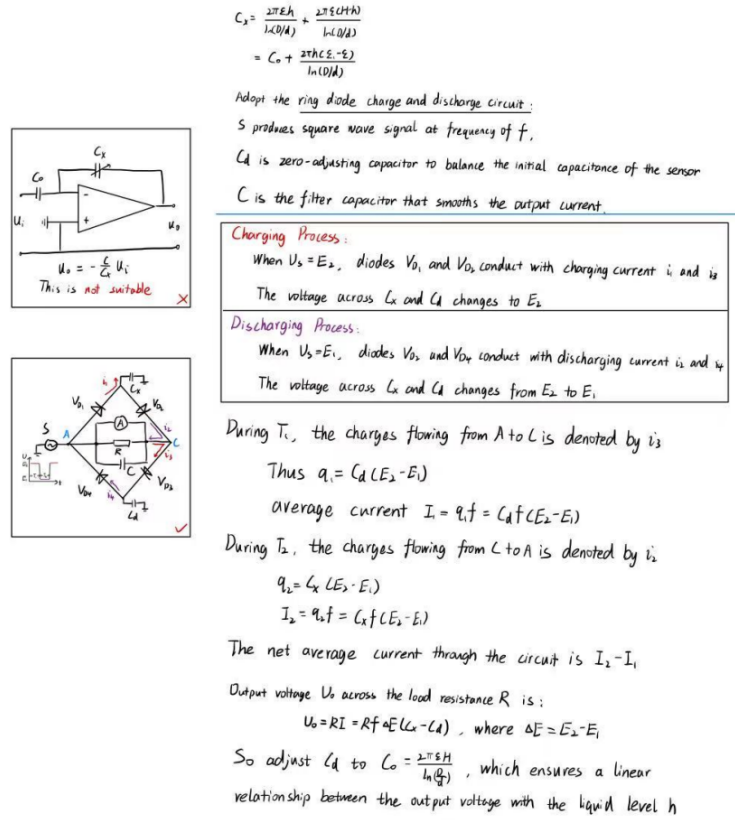 Cx = 2πεh/ln(D/d) + 2πε(H-h)/ln(D/d)
= C₀ + 2πh(ε₁-ε)/ln(D/d)
Adopt the ring diode charge and discharge circuit:
S produces square wave signal at frequency of f.
Cd is zero-adjusting capacitor to balance the initial capacitance of the sensor
C is the filter capacitor that smooths the output current.
Cx
C₀
-
+
Ui
U₀
U₀ = - C/Cx Ui
This is not suitable
×
Charging Process:
When Us=E₂, diodes VD₁ and VD₃ conduct with charging current i₁ and i₃
The voltage across Cx and Cd changes to E₂
Discharging Process:
When Us=E₁, diodes VD₂ and VD₄ conduct with discharging current i₂ and i₄
The voltage across Cx and Cd changes from E₂ to E₁
i₁
Cx
VD₁
VD₂
S
A
A
i₂
C
R
i₃
C
VD₄
i₄
VD₃
Cd
✓
During T₁, the charges flowing from A to C is denoted by i₃
Thus q₁ = Cd(E₂-E₁)
average current I₁ = q₁f = Cdf(E₂-E₁)
During T₂, the charges flowing from C to A is denoted by i₂
q₂ = Cx(E₂-E₁)
I₂ = q₂f = Cxf(E₂-E₁)
The net average current through the circuit is I₂-I₁
Output voltage U₀ across the load resistance R is:
U₀ = RI = RfΔE(Cx-Cd), where ΔE = E₂-E₁
So adjust Cd to C₀ = 2πεH/ln(D/d), which ensures a linear
relationship between the output voltage with the liquid level h